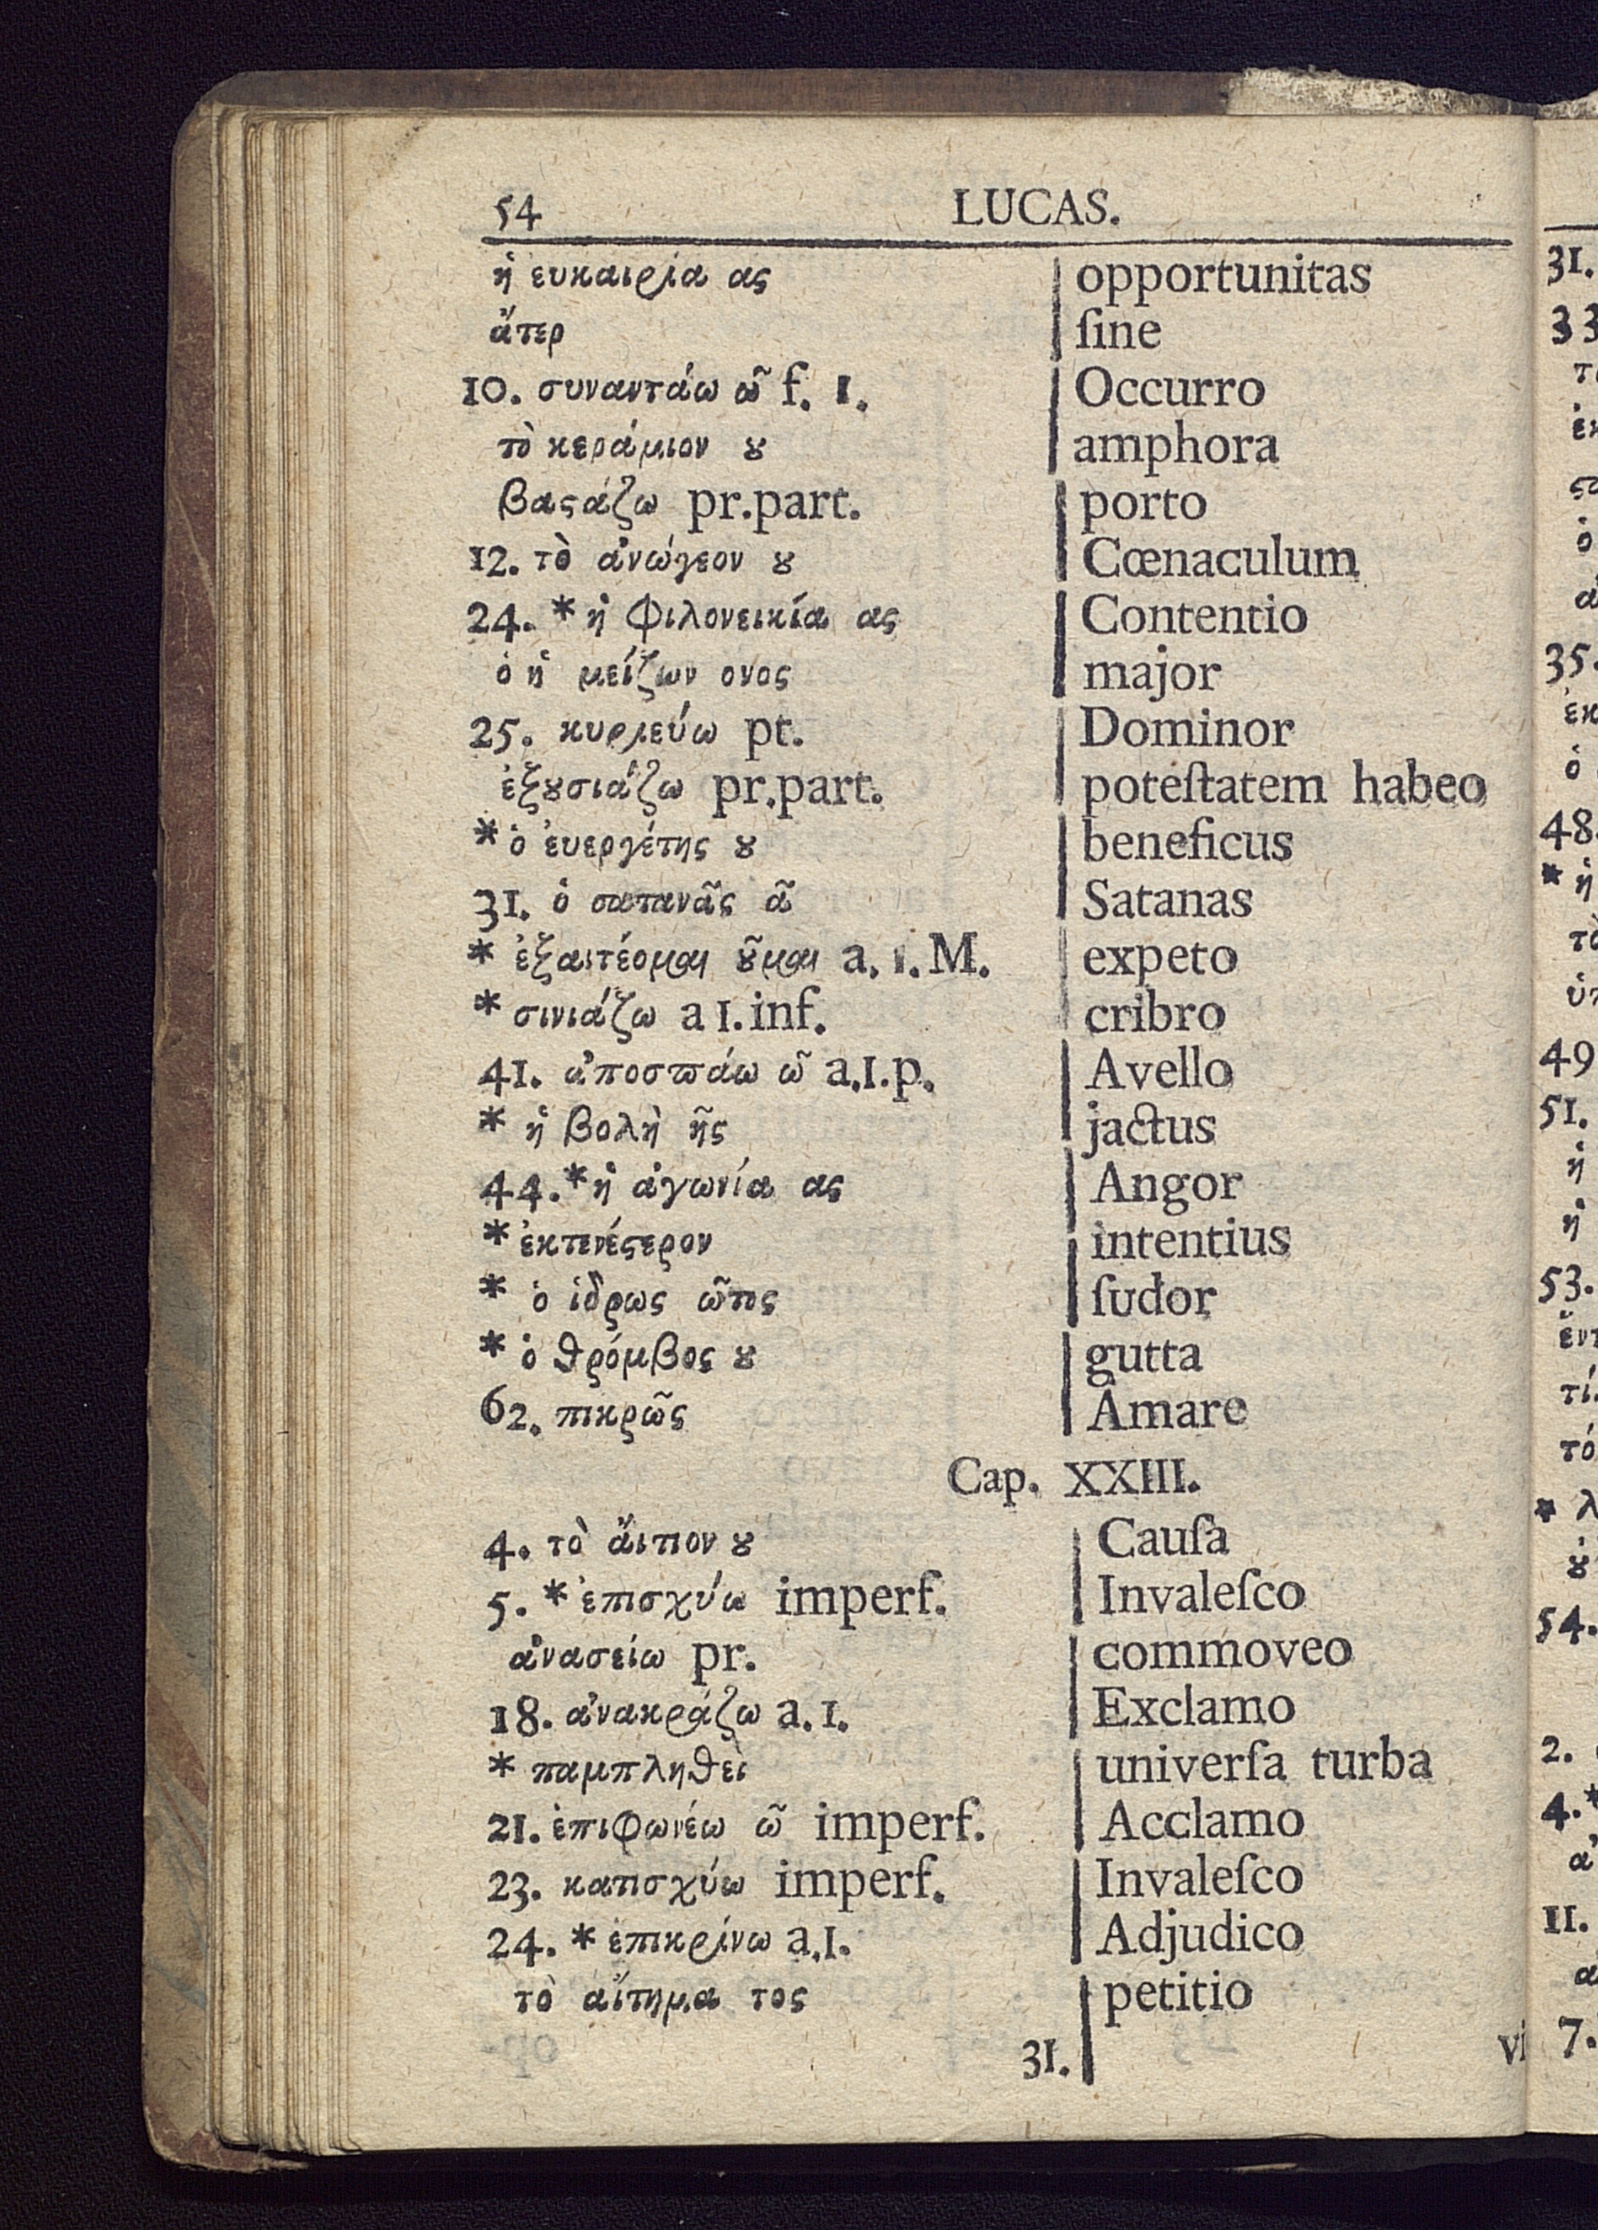 54 LUCAS.
ἡ ευκαιρία ας | opportunitas
ἄτερ | ſine
10. συναντάω ῶ f. 1. | Occurro
τὸ κεράμιον ȣ | amphora
βαςάζω pr.part. | porto
12. τὸ ἀνώγεον ȣ | Cœnaculum
24. * ἡ φιλονεικία ας | Contentio
ὁ ἡ μείζων ονος | major
25. κυριεύω pt. | Dominor
ἐξȣσιάζω pr.part. | poteſtatem habeo
* ὁ ἐυεργέτης ȣ | beneficus
31. ὁ σατανᾶς ᾶ | Satanas
* ἐξαιτέομαι ȣ͂μαι a. 1. M. | expeto
* σινιάζω a 1. inf. | cribro
41. ἀποσπάω ῶ a.1.p. | Avello
* ἡ βολὴ ῆς | jactus
44. * ἡ ἀγωνία ας | Angor
* ἐκτενέςερον | intentius
* ὁ ἱδρως ῶτος | ſudor
* ὁ θρόμβος ȣ | gutta
62. πικρῶς | Amare
Cap. XXIII.
4. τὸ ἄιτιον ȣ | Cauſa
5. * ἐπισχύω imperf. | Invaleſco
ἀνασείω pr. | commoveo
18. ἀνακράζω a. 1. | Exclamo
* παμπληθεὶ | univerſa turba
21. ἐπιφωνέω ῶ imperf. | Acclamo
23. κατισχύω imperf. | Invaleſco
24. * ἐπικρίνω a.1. | Adjudico
τὸ αἴτημα τος | petitio
31. | vi
31.
33
35.
48.
* ἡ
49
51.
ἡ
ἡ
53.
54.
2.
4.*
11.
7.